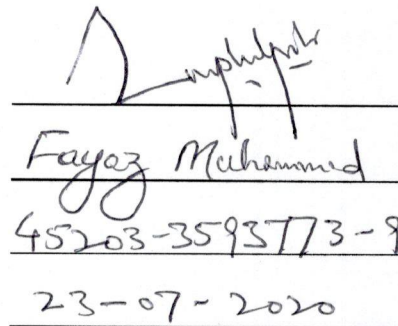 Fayaz Muhammed
45203-3593773-9
23-07-2020